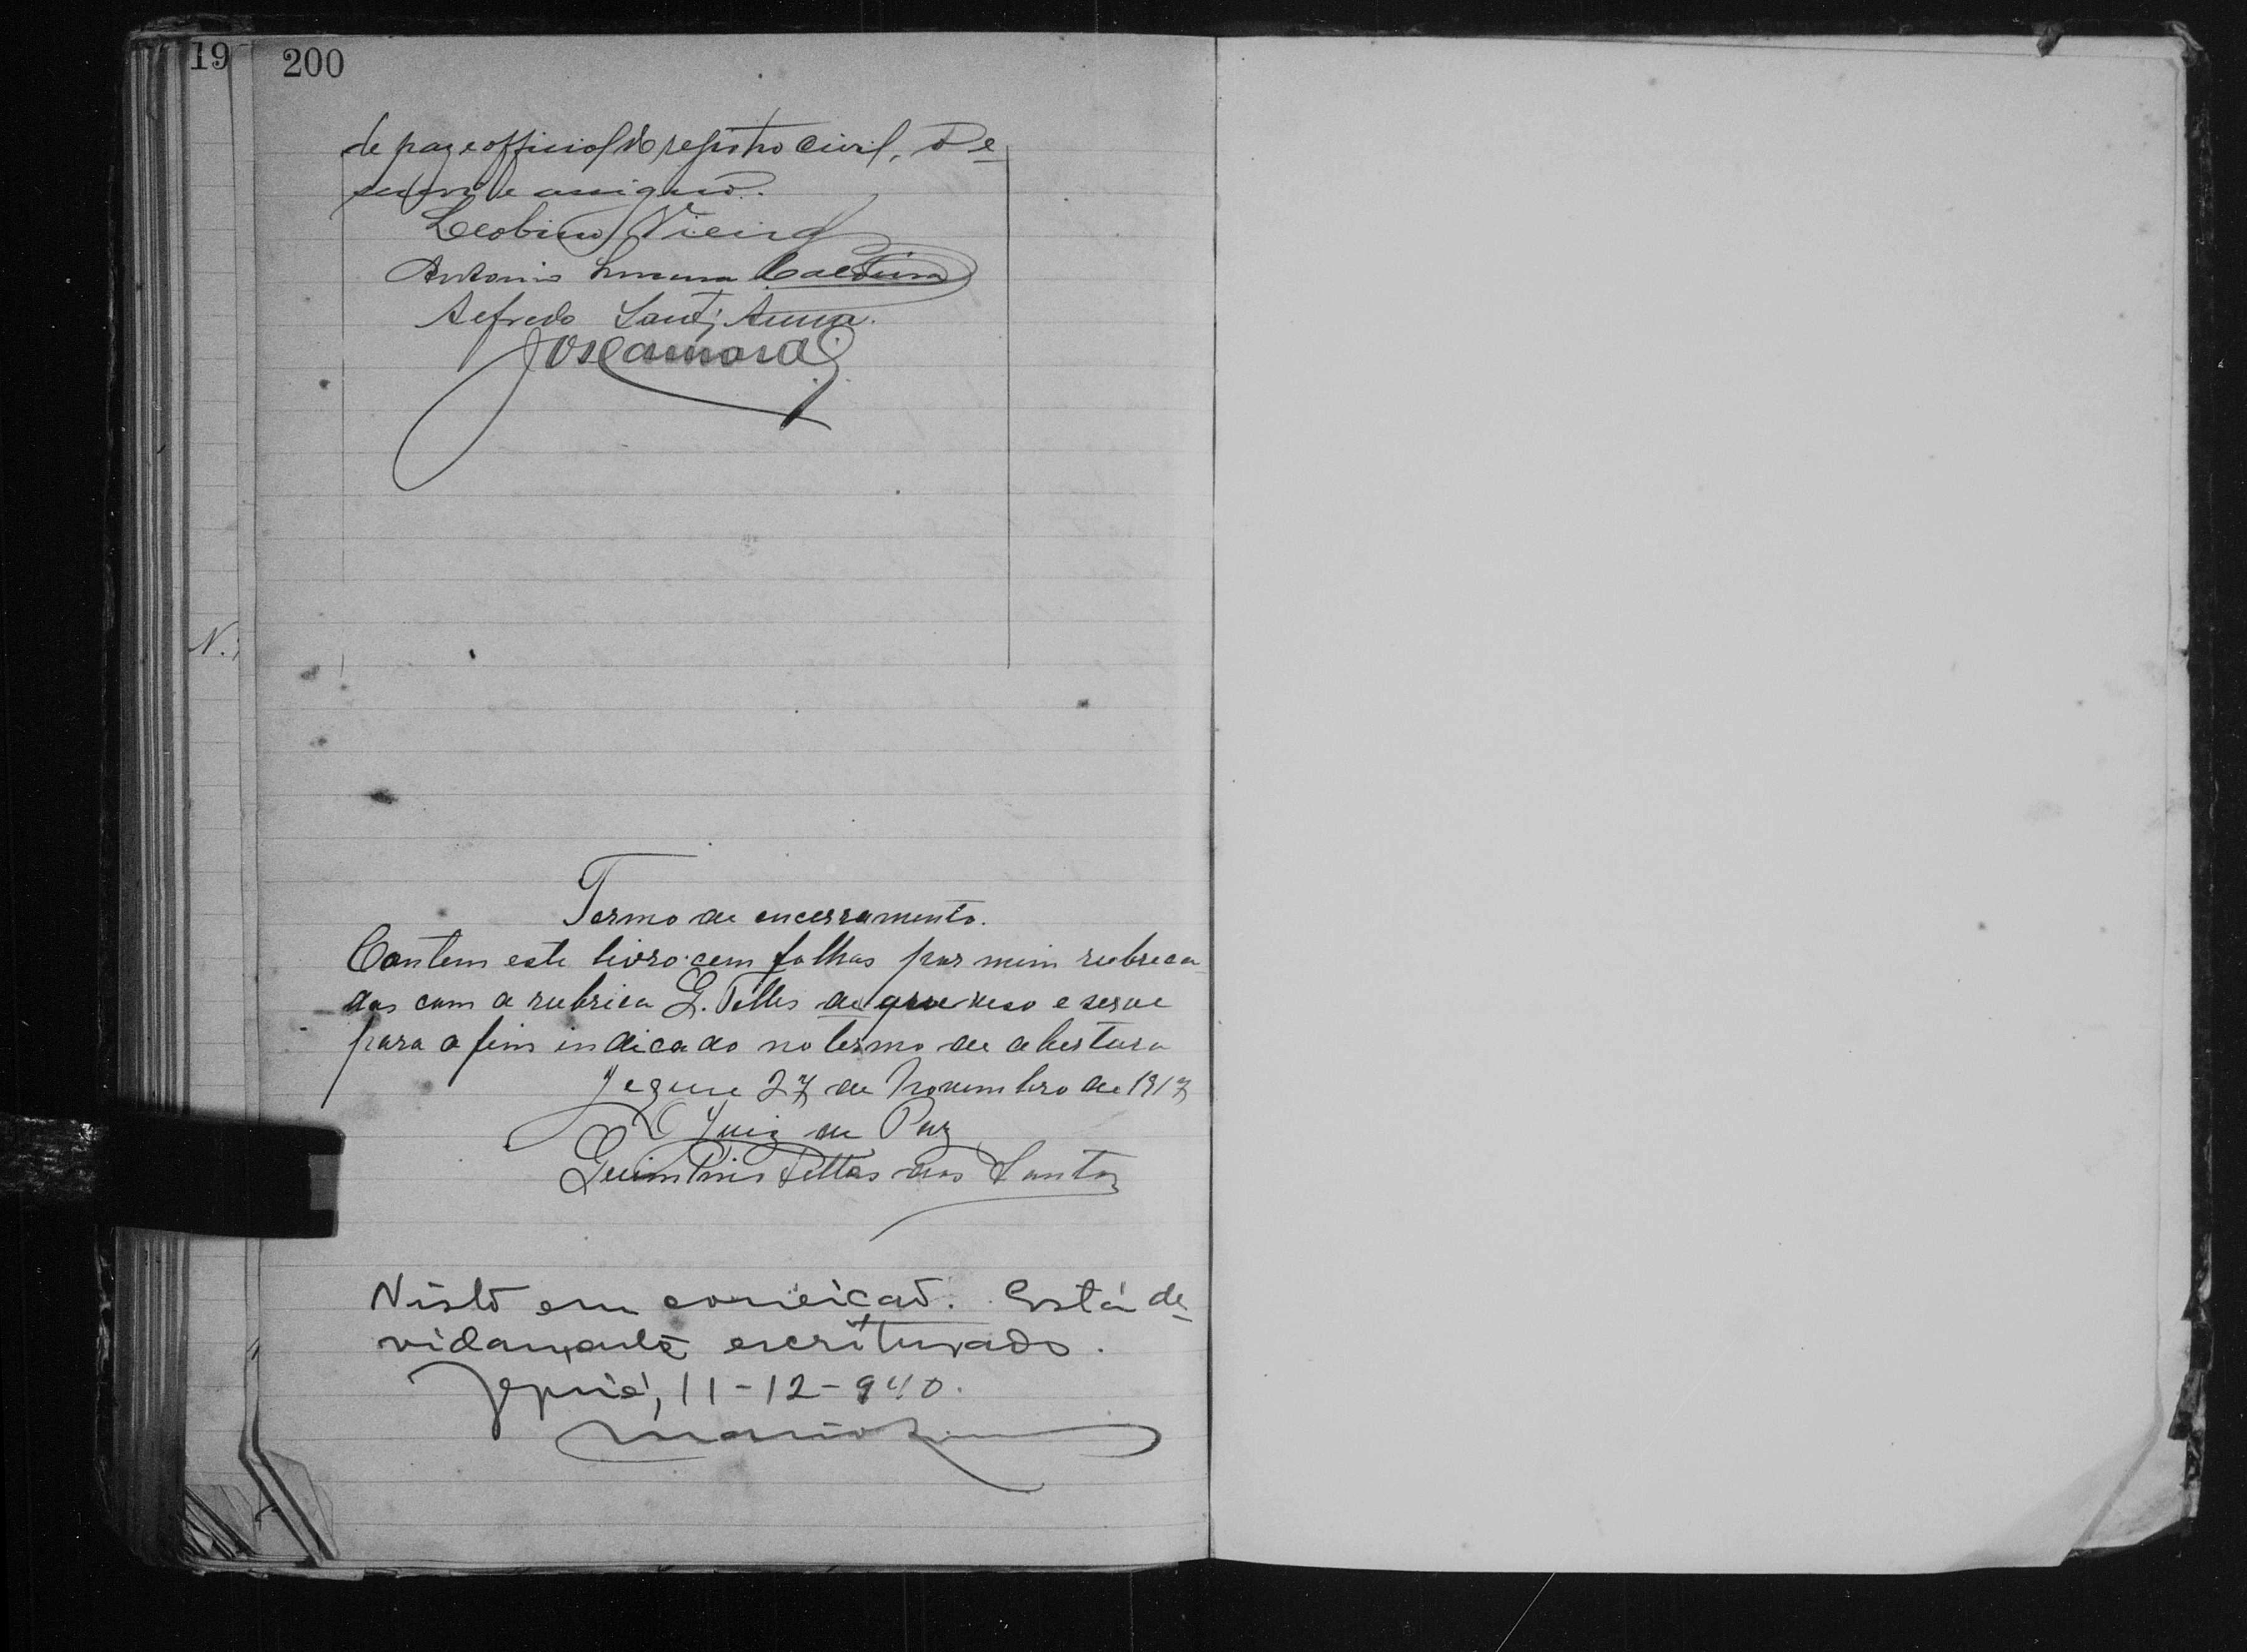 19
200
de paz e official do registro civil, De
subscrevi e assigno.
Leobino Vieira
Antonio Caldeira
Alfredo Sant'Anna.
N.
Termo de encerramento.
Contem este livro cem folhas por mim rubrica
das com a rubrica G. Telles de que uso e serve
para o fim indicado no termo de abertura
Jequie 27 de Novembro de 1917
O Juiz de Paz
Telles dos Santos
Visto em correição. Está de
vidamente escriturado.
Jequié, 11-12-940.